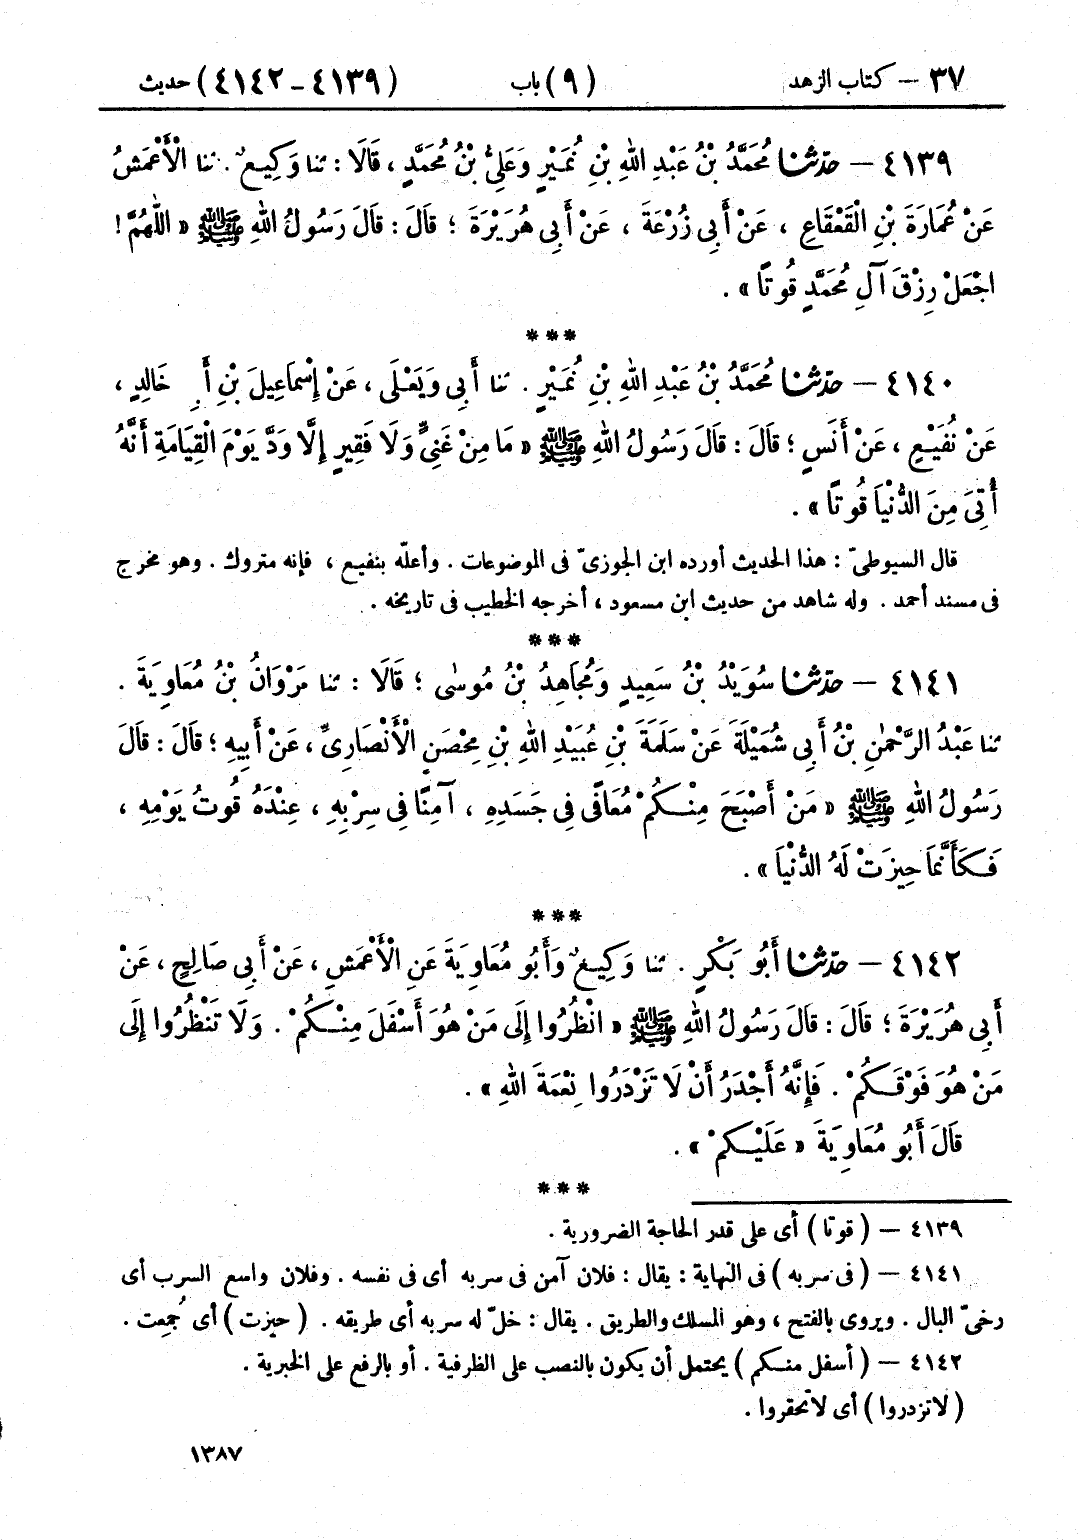 ٣٧ — كتاب الزهد (٩) باب (٤١٣٩ - ٤١٤٢) حديث
٤١٣٩ — حدّثنا مُحَمَّدُ بْنُ عَبْدِ اللهِ بْنِ نُمَيْرٍ وَعَلِيُّ بْنُ مُحَمَّدٍ ، قَالَا : ثنا وَكِيعٌ . ثنا الْأَعْمَشُ
عَنْ عُمَارَةَ بْنِ الْقَعْقَاعِ ، عَنْ أَبِي زُرْعَةَ ، عَنْ أَبِي هُرَيْرَةَ ؛ قَالَ : قَالَ رَسُولُ اللهِ ﷺ « اللّٰهُمَّ !
اجْعَلْ رِزْقَ آلِ مُحَمَّدٍ قُوتًا » .
***
٤١٤٠ — حدّثنا مُحَمَّدُ بْنُ عَبْدِ اللهِ بْنِ نُمَيْرٍ . ثنا أَبِي وَيَعْلَى ، عَنْ إِسْمَاعِيلَ بْنِ أَبِي خَالِدٍ ،
عَنْ نُفَيْعٍ ، عَنْ أَنَسٍ ؛ قَالَ : قَالَ رَسُولُ اللهِ ﷺ « مَا مِنْ غَنِيٍّ وَلَا فَقِيرٍ إِلَّا وَدَّ يَوْمَ الْقِيَامَةِ أَنَّهُ
أُتِيَ مِنَ الدُّنْيَا قُوتًا » .
قال السيوطىّ : هذا الحديث أورده ابن الجوزىّ فى الموضوعات . وأعلّه بنفيع ، فإنه متروك . وهو مخرج
فى مسند أحمد . وله شاهد من حديث ابن مسعود ، أخرجه الخطيب فى تاريخه .
***
٤١٤١ — حدّثنا سُوَيْدُ بْنُ سَعِيدٍ وَمُجَاهِدُ بْنُ مُوسَى ؛ قَالَا : ثنا مَرْوَانُ بْنُ مُعَاوِيَةَ .
ثنا عَبْدُ الرَّحْمٰنِ بْنُ أَبِي شُمَيْلَةَ عَنْ سَلَمَةَ بْنِ عُبَيْدِ اللهِ بْنِ مِحْصَنٍ الْأَنْصَارِيِّ ، عَنْ أَبِيهِ ؛ قَالَ : قَالَ
رَسُولُ اللهِ ﷺ « مَنْ أَصْبَحَ مِنْكُمْ مُعَافًى فِي جَسَدِهِ ، آمِنًا فِي سِرْبِهِ ، عِنْدَهُ قُوتُ يَوْمِهِ ،
فَكَأَنَّمَا حِيزَتْ لَهُ الدُّنْيَا » .
***
٤١٤٢ — حدّثنا أَبُو بَكْرٍ . ثنا وَكِيعٌ وَأَبُو مُعَاوِيَةَ عَنِ الْأَعْمَشِ ، عَنْ أَبِي صَالِحٍ ، عَنْ
أَبِي هُرَيْرَةَ ؛ قَالَ : قَالَ رَسُولُ اللهِ ﷺ « انْظُرُوا إِلَى مَنْ هُوَ أَسْفَلَ مِنْكُمْ . وَلَا تَنْظُرُوا إِلَى
مَنْ هُوَ فَوْقَكُمْ . فَإِنَّهُ أَجْدَرُ أَنْ لَا تَزْدَرُوا نِعْمَةَ اللهِ » .
قَالَ أَبُو مُعَاوِيَةَ « عَلَيْكُمْ » .
***
٤١٣٩ — ( قوتا ) أى على قدر الحاجة الضرورية .
٤١٤١ — ( فى سربه ) فى النهاية : يقال : فلان آمن فى سربه أى فى نفسه . وفلان واسع السرب أى
رخىّ البال . ويروى بالفتح ، وهو المسلك والطريق . يقال : خلّ له سربه أى طريقه . ( حيزت ) أى جُمعت .
٤١٤٢ — ( أسفل منكم ) يحتمل أن يكون بالنصب على الظرفية . أو بالرفع على الخبرية .
( لا تزدروا ) أى لا تحقروا .
١٣٨٧